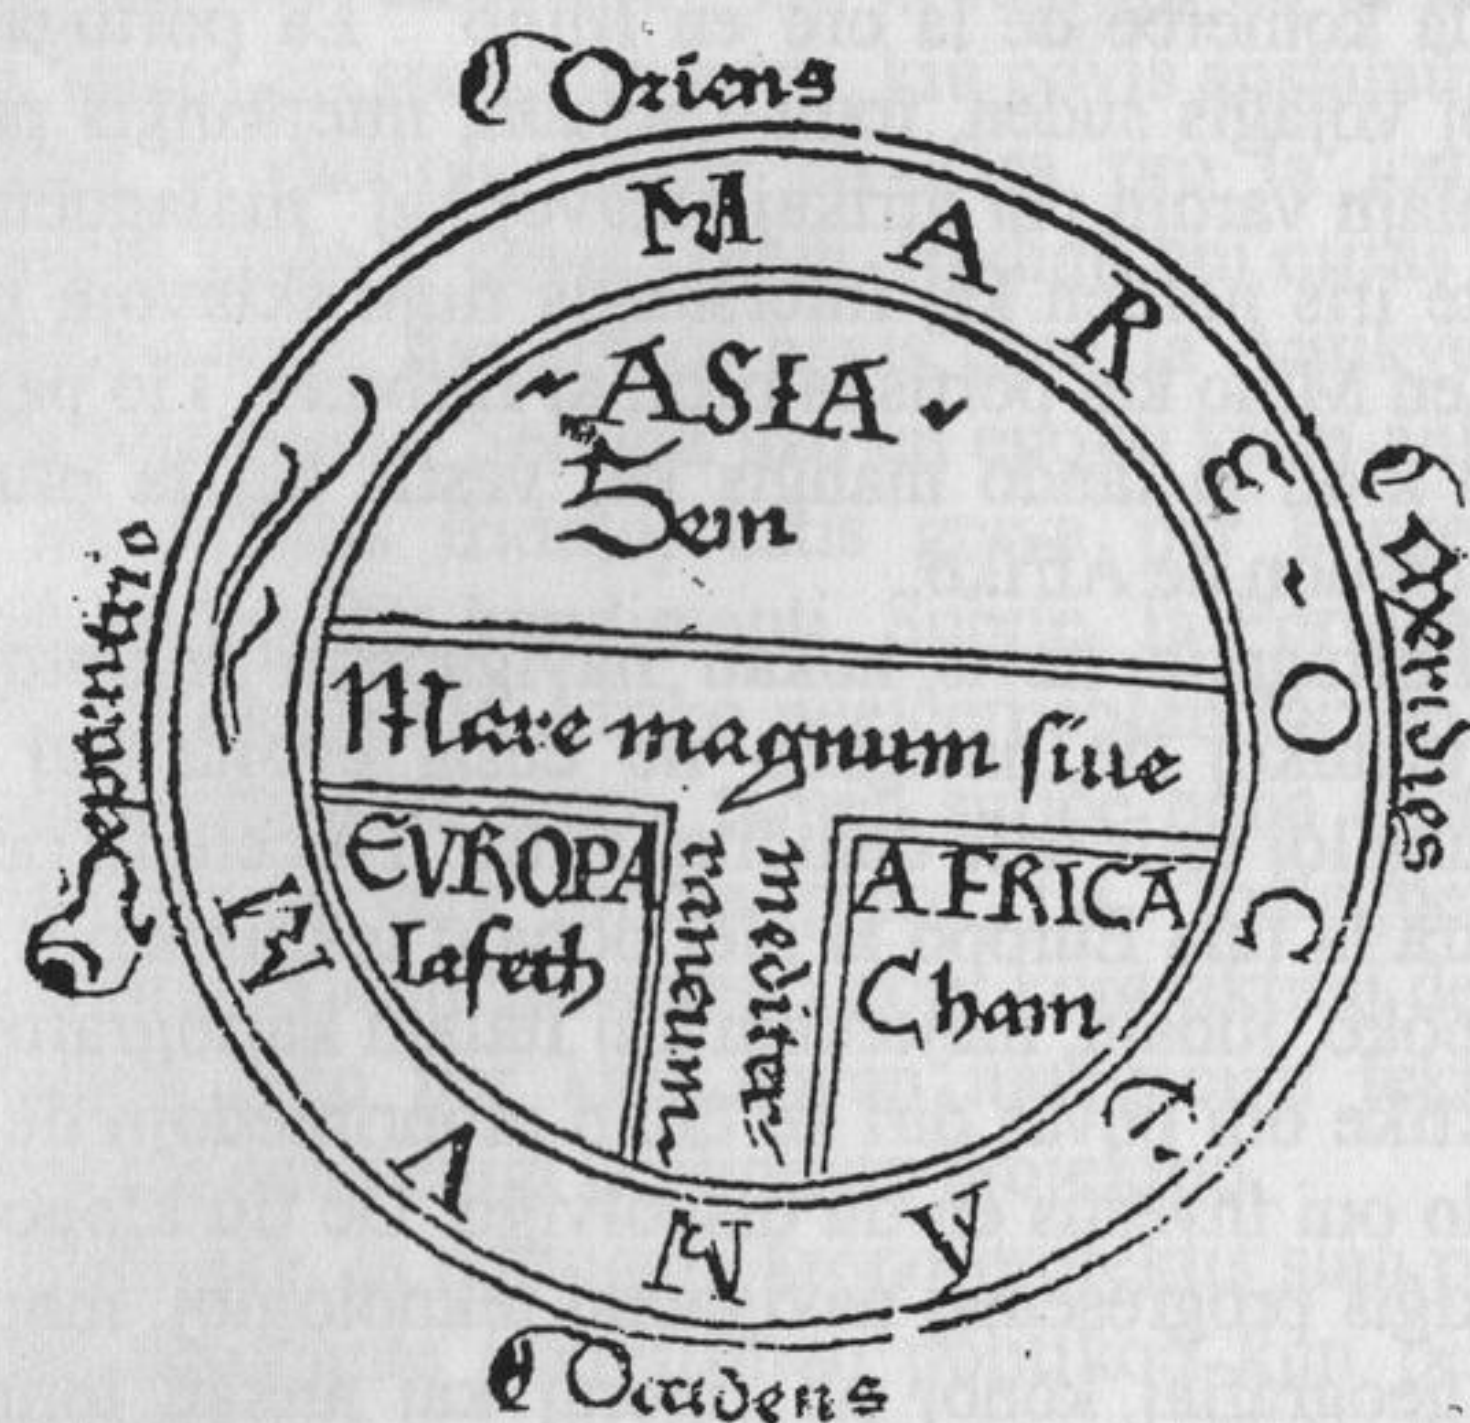 Oriens
MARE OCEANVM
ASIA
Sem
Mare magnum siue
mediter
raneum
EVROPA
Iafeth
AFRICA
Cham
Septentrio
Meridies
Occidens